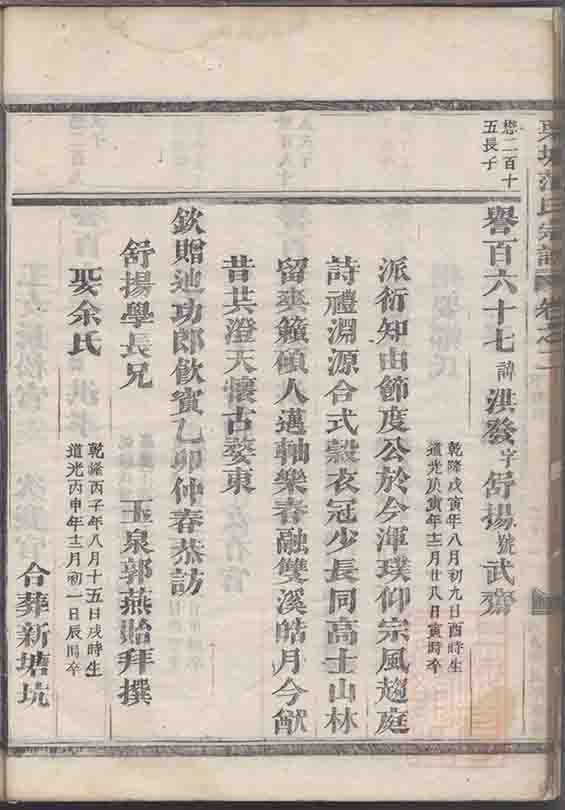 懋二百十
五長子
譽百六十七諱洪發字舒揚號武齋
乾隆戊寅年八月初九日酉時生
道光庚寅年十二月廿八日寅時卒
派衍知由節度公於今渾璞仰宗風趨庭
詩禮淵源合式穀衣冠少長同高士山林
留爽籟碩人邁軸樂春融雙溪皓月今猷
昔共澄天懷古婺東
欽贈迪功郎飲賓乙卯仲春恭訪
舒揚學長兄
玉泉郭燕貽拜撰
娶余氏
乾隆丙子年八月十五日戌時生
道光丙申年十二月初一日辰時卒
合葬新塘坑
氏宗譜
卷之二